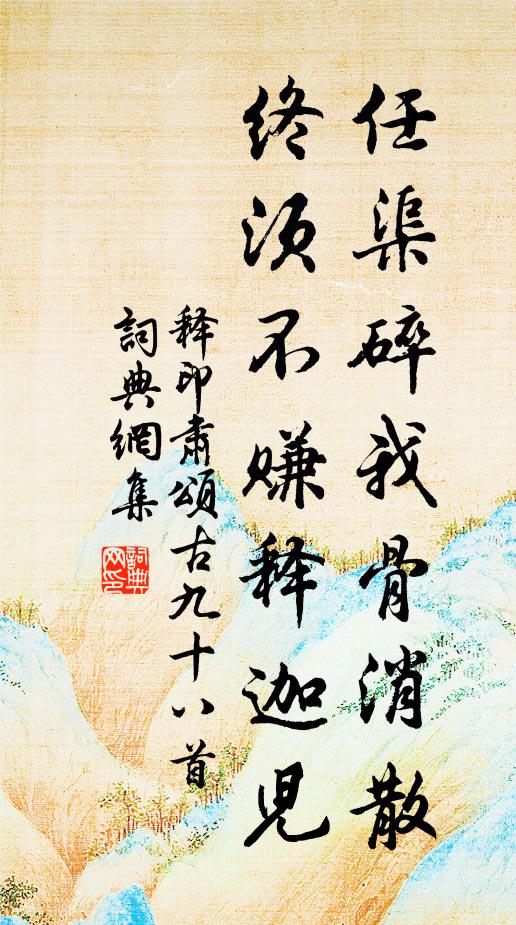 任渠碎我骨消散
终须不赚释迦児
释印肃颂古九十八首
詞典網集
詞典网印